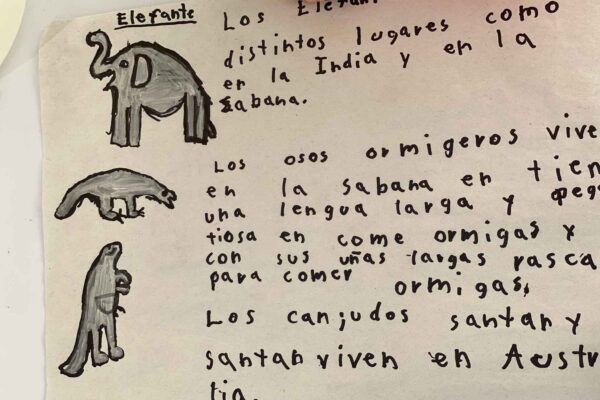 Elefante
Los Elefan
distintos lugares como
en la India y en la
sabana.
Los osos ormigeros vive
en la sabana en tien
una lengua larga y pega
tiosa en come ormigas y
con sus uñas largas rasca
para comer ormigas,
Los canjudos santan y
santan viven en Austr
lia.